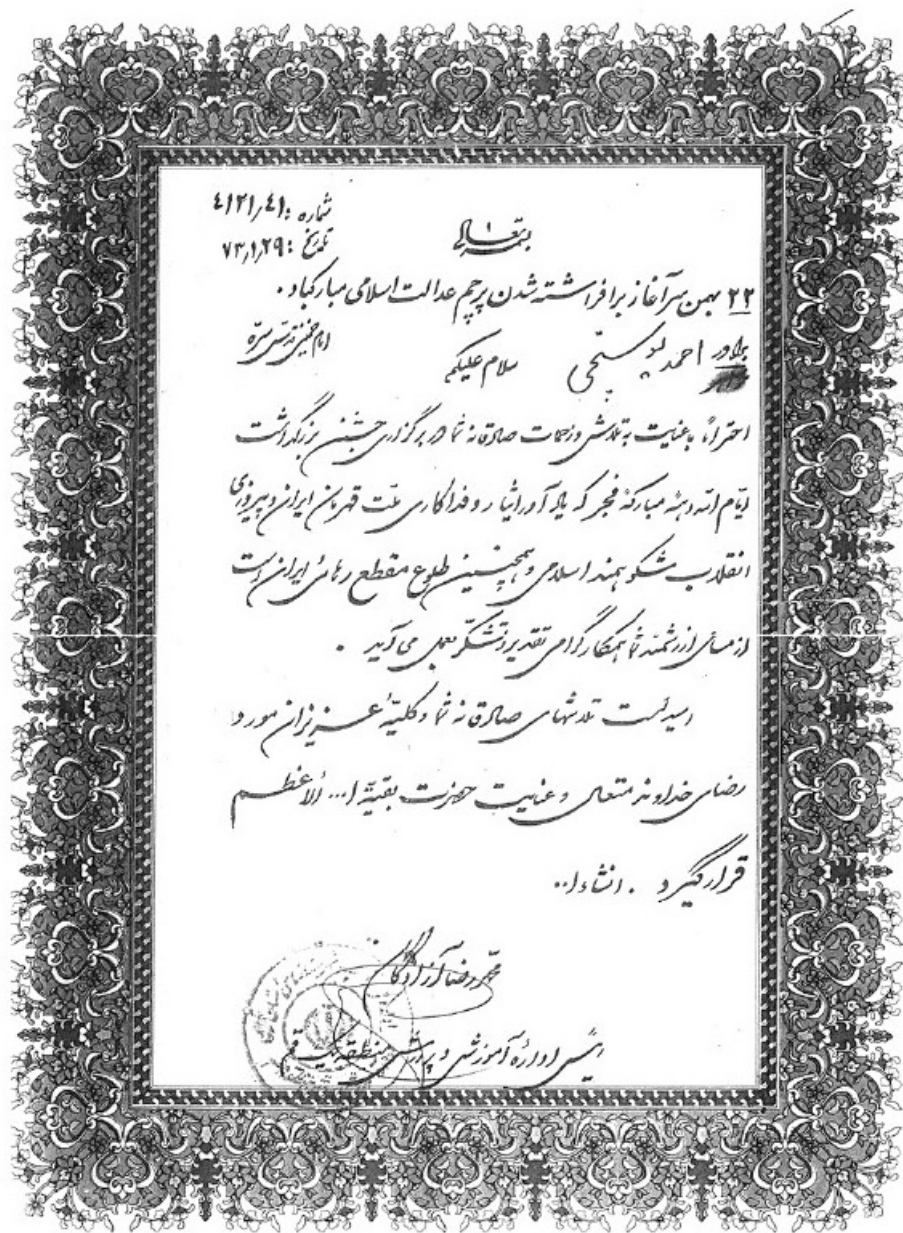 شماره : ۴۱۲۱٫۴۱
تاریخ : ۷۳٫۱٫۲۹
بسمه تعالی
۲۲ بهمن سرآغاز برافراشته شدن پرچم عدالت اسلامی مبارکباد .
امام خمینی قدس سره
برادر احمد
سلام علیکم
احتراماً، با عنایت به تلاش و زحمات صادقانه شما در برگزاری جشن بزرگداشت
ایّام الله دهه مبارکه فجر که یادآور ایثار و فداکاری ملّت قهرمان ایران و پیروزی
انقلاب شکوهمند اسلامی و همچنین طلوع مقطع رهائی ایران است
از مساعی ارزشمند شما همکار گرامی تقدیر و تشکّر بعمل می آید .
امید است تلاشهای صادقانه شما و کلیّه عزیزان مورد
رضای خداوند متعال و عنایت حضرت بقیّة ا... الأعظم
قرار گیرد . انشاءا..
محمدرضا آزادگان
رئیس اداره آموزش و پرورش منطقه یک قم